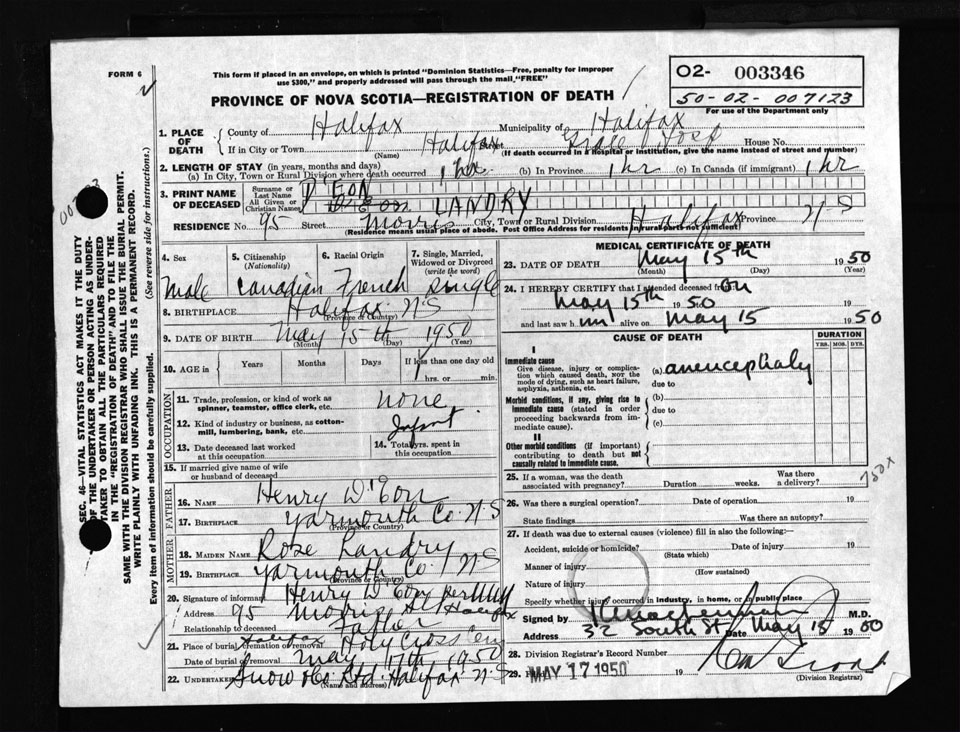 FORM 6
This form if placed in an envelope, on which is printed "Dominion Statistics—Free, penalty for improper
use $300," and properly addressed will pass through the mail, "FREE"
PROVINCE OF NOVA SCOTIA—REGISTRATION OF DEATH
02- 003346
50-02-007123
For use of the Department only
1. PLACE OF DEATH
County of Halifax Municipality of Halifax
If in City or Town Halifax Street Grace House No.
(Name) (If death occurred in a hospital or institution, give the name instead of street and number)
2. LENGTH OF STAY (in years, months and days)
(a) In City, Town or Rural Division where death occurred 1 hr (b) In Province 1 hr (c) In Canada (if immigrant) 1 hr
3. PRINT NAME OF DECEASED
Surname or Last Name D'EON
All Given or Christian Names D'Eon LANDRY
RESIDENCE No. 95 Street Morris City, Town or Rural Division Halifax Province N S
(Residence means usual place of abode. Post Office Address for residents in rural parts not sufficient)
4. Sex
5. Citizenship (Nationality)
6. Racial Origin
7. Single, Married, Widowed or Divorced (write the word)
male Canadian French single
8. BIRTHPLACE Halifax N.S
(Province or Country)
9. DATE OF BIRTH May 15th 1950
(Month) (Day) (Year)
10. AGE in Years Months Days If less than one day old
1 hrs. or min.
OCCUPATION
11. Trade, profession, or kind of work as
spinner, teamster, office clerk, etc. none
12. Kind of industry or business, as cotton-
mill, lumbering, bank, etc. Infant
13. Date deceased last worked
at this occupation
14. Total yrs. spent in
this occupation
15. If married give name of wife
or husband of deceased
FATHER
16. NAME Henry D'Eon
17. BIRTHPLACE Yarmouth Co. N.S
(Province or Country)
MOTHER
18. MAIDEN NAME Rose Landry
19. BIRTHPLACE Yarmouth Co. N S
(Province or Country)
20. Signature of informant Henry D'Eon per
Address 95 Morris St Halifax
Relationship to deceased Father
21. Place of burial, cremation or removal Halifax Holy Cross Cem
Date of burial or removal May 17th 1950
22. Undertaker Snow & Co Ltd. Halifax N S
(Name and address)
MEDICAL CERTIFICATE OF DEATH
23. DATE OF DEATH May 15th 1950
(Month) (Day) (Year)
24. I HEREBY CERTIFY that I attended deceased from On
May 15th 1950 19
and last saw him alive on May 15 1950
CAUSE OF DEATH
DURATION
YRS. MOS. DYS.
I
Immediate cause
Give disease, injury or complica-
tion which caused death, NOT the
mode of dying, such as heart failure,
asphyxia, asthenia, etc.
(a) anencephaly
due to
Morbid conditions, if any, giving rise to
immediate cause (stated in order
proceeding backwards from im-
mediate cause).
(b)
due to
(c)
II
Other morbid conditions (if important)
contributing to death but not
causally related to immediate cause.
25. If a woman, was the death
associated with pregnancy? Duration weeks. Was there
a delivery?
750x
26. Was there a surgical operation? Date of operation 19
State findings Was there an autopsy?
27. If death was due to external causes (violence) fill in also the following:
Accident, suicide or homicide? Date of injury 19
(State which)
Manner of injury
(How sustained)
Nature of injury
Specify whether injury occurred in industry, in home, or in public place
Signed by M.D.
Address 32 South St Date May 15 1950
28. Division Registrar's Record Number
29. Filed MAY 17 1950 19
(Division Registrar)
SEC. 46—VITAL STATISTICS ACT MAKES IT THE DUTY
OF THE UNDERTAKER OR PERSON ACTING AS UNDER-
TAKER TO OBTAIN ALL THE PARTICULARS REQUIRED
IN THE "REGISTRATION OF DEATH" AND TO FILE THE
SAME WITH THE DIVISION REGISTRAR WHO SHALL ISSUE THE BURIAL PERMIT.
WRITE PLAINLY WITH UNFADING INK. THIS IS A PERMANENT RECORD.
Every item of information should be carefully supplied. (See reverse side for instructions.)